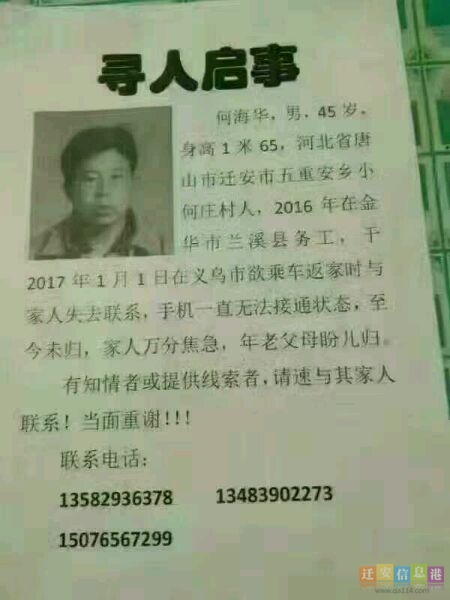 寻人启事
何海华，男，45岁。
身高1米65，河北省唐
山市迁安市五重安乡小
何庄村人，2016年在金
华市兰溪县务工，于
2017年1月1日在义乌市欲乘车返家时与
家人失去联系，手机一直无法接通状态，至
今未归，家人万分焦急，年老父母盼儿归。
有知情者或提供线索者，请速与其家人
联系！当面重谢!!!
联系电话：
13582936378 13483902273
15076567299
迁安信息港
www.qa114.com